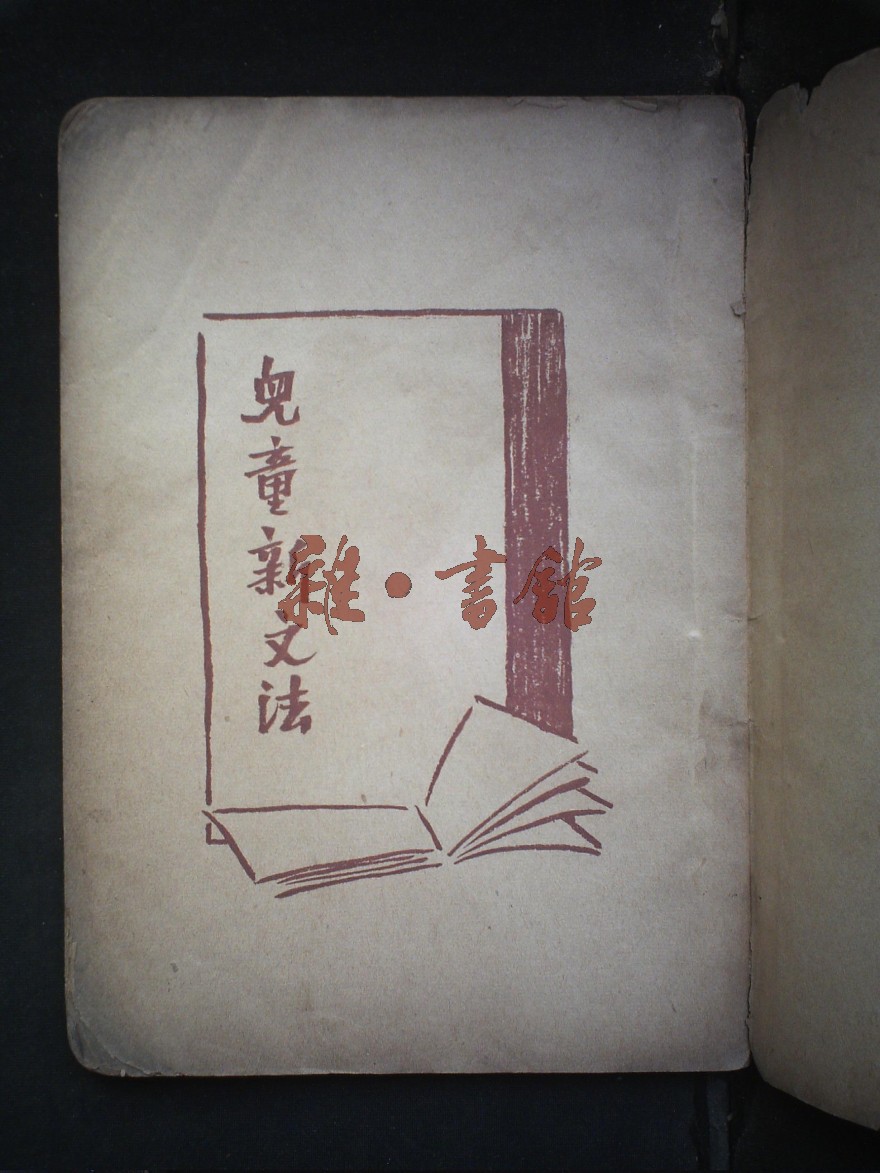 兒童新文法
雜·書館